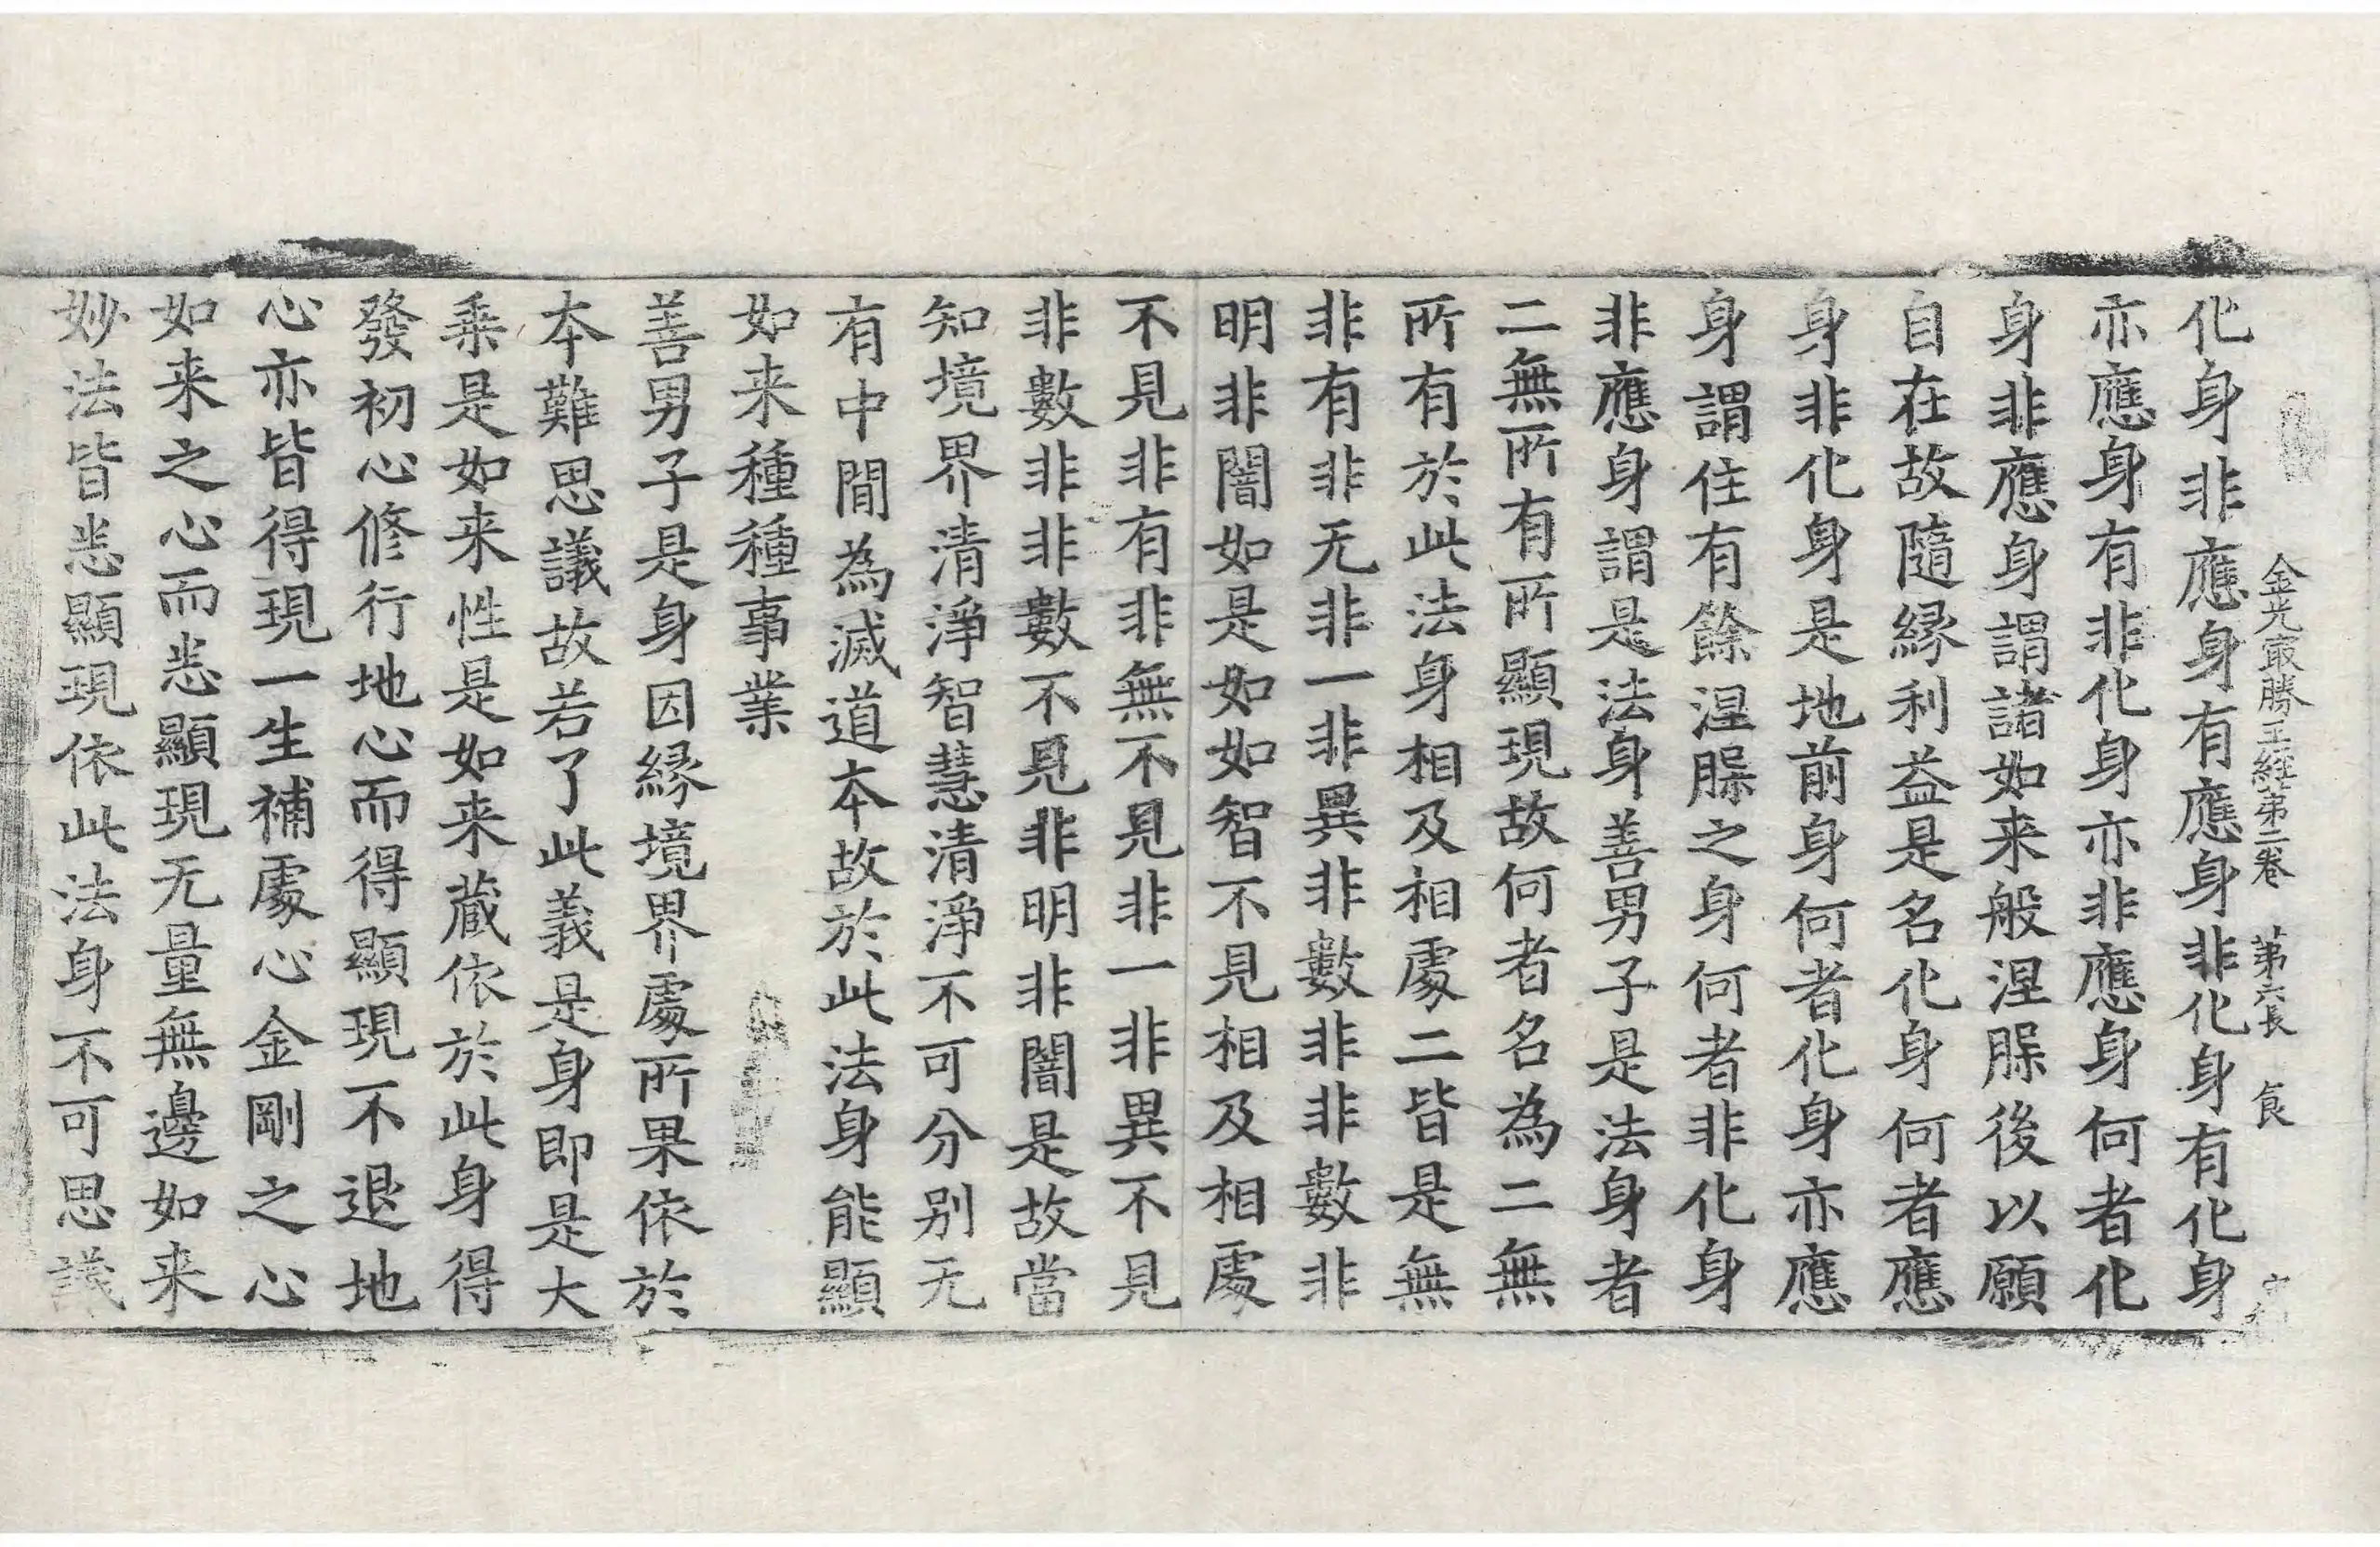 金光冣勝王經第二卷 第六張 食
化身非應身有應身非化身有化身
亦應身有非化身亦非應身何者化
身非應身謂諸如来般涅脲後以願
自在故隨緣利益是名化身何者應
身非化身是地前身何者化身亦應
身謂住有餘涅脲之身何者非化身
非應身謂是法身善男子是法身者
二無所有所顯現故何者名為二無
所有於此法身相及相處二皆是無
非有非无非一非異非數非非數非
明非闇如是如如智不見相及相處
不見非有非無不見非一非異不見
非數非非數不見非明非闇是故當
知境界清淨智慧清淨不可分別无
有中間為滅道本故於此法身能顯
如来種種事業
善男子是身因緣境界處所果依於
本難思議故若了此義是身即是大
乘是如来性是如来蔵依於此身得
發初心修行地心而得顯現不退地
心亦皆得現一生補處心金剛之心
如来之心而悉顯現无量無邊如来
妙法皆悉顯現依此法身不可思議